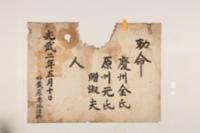 勅命
慶州金氏
原州元氏
贈淑夫
人
光武二年五月十日